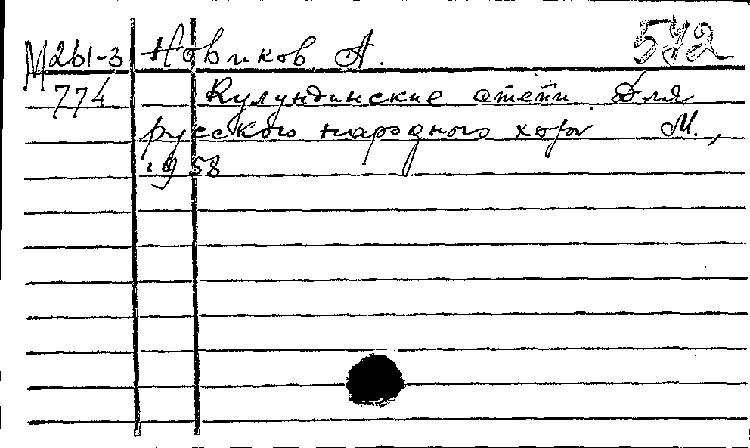 М261-3 Новиков А. 592
774 Кулундинские степи. Для
русского народного хора М.,
1958